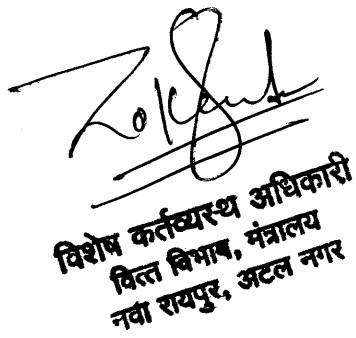 विशेष कर्तव्यस्थ अधिकारी
वित्त विभाग, मंत्रालय
नवा रायपुर, अटल नगर